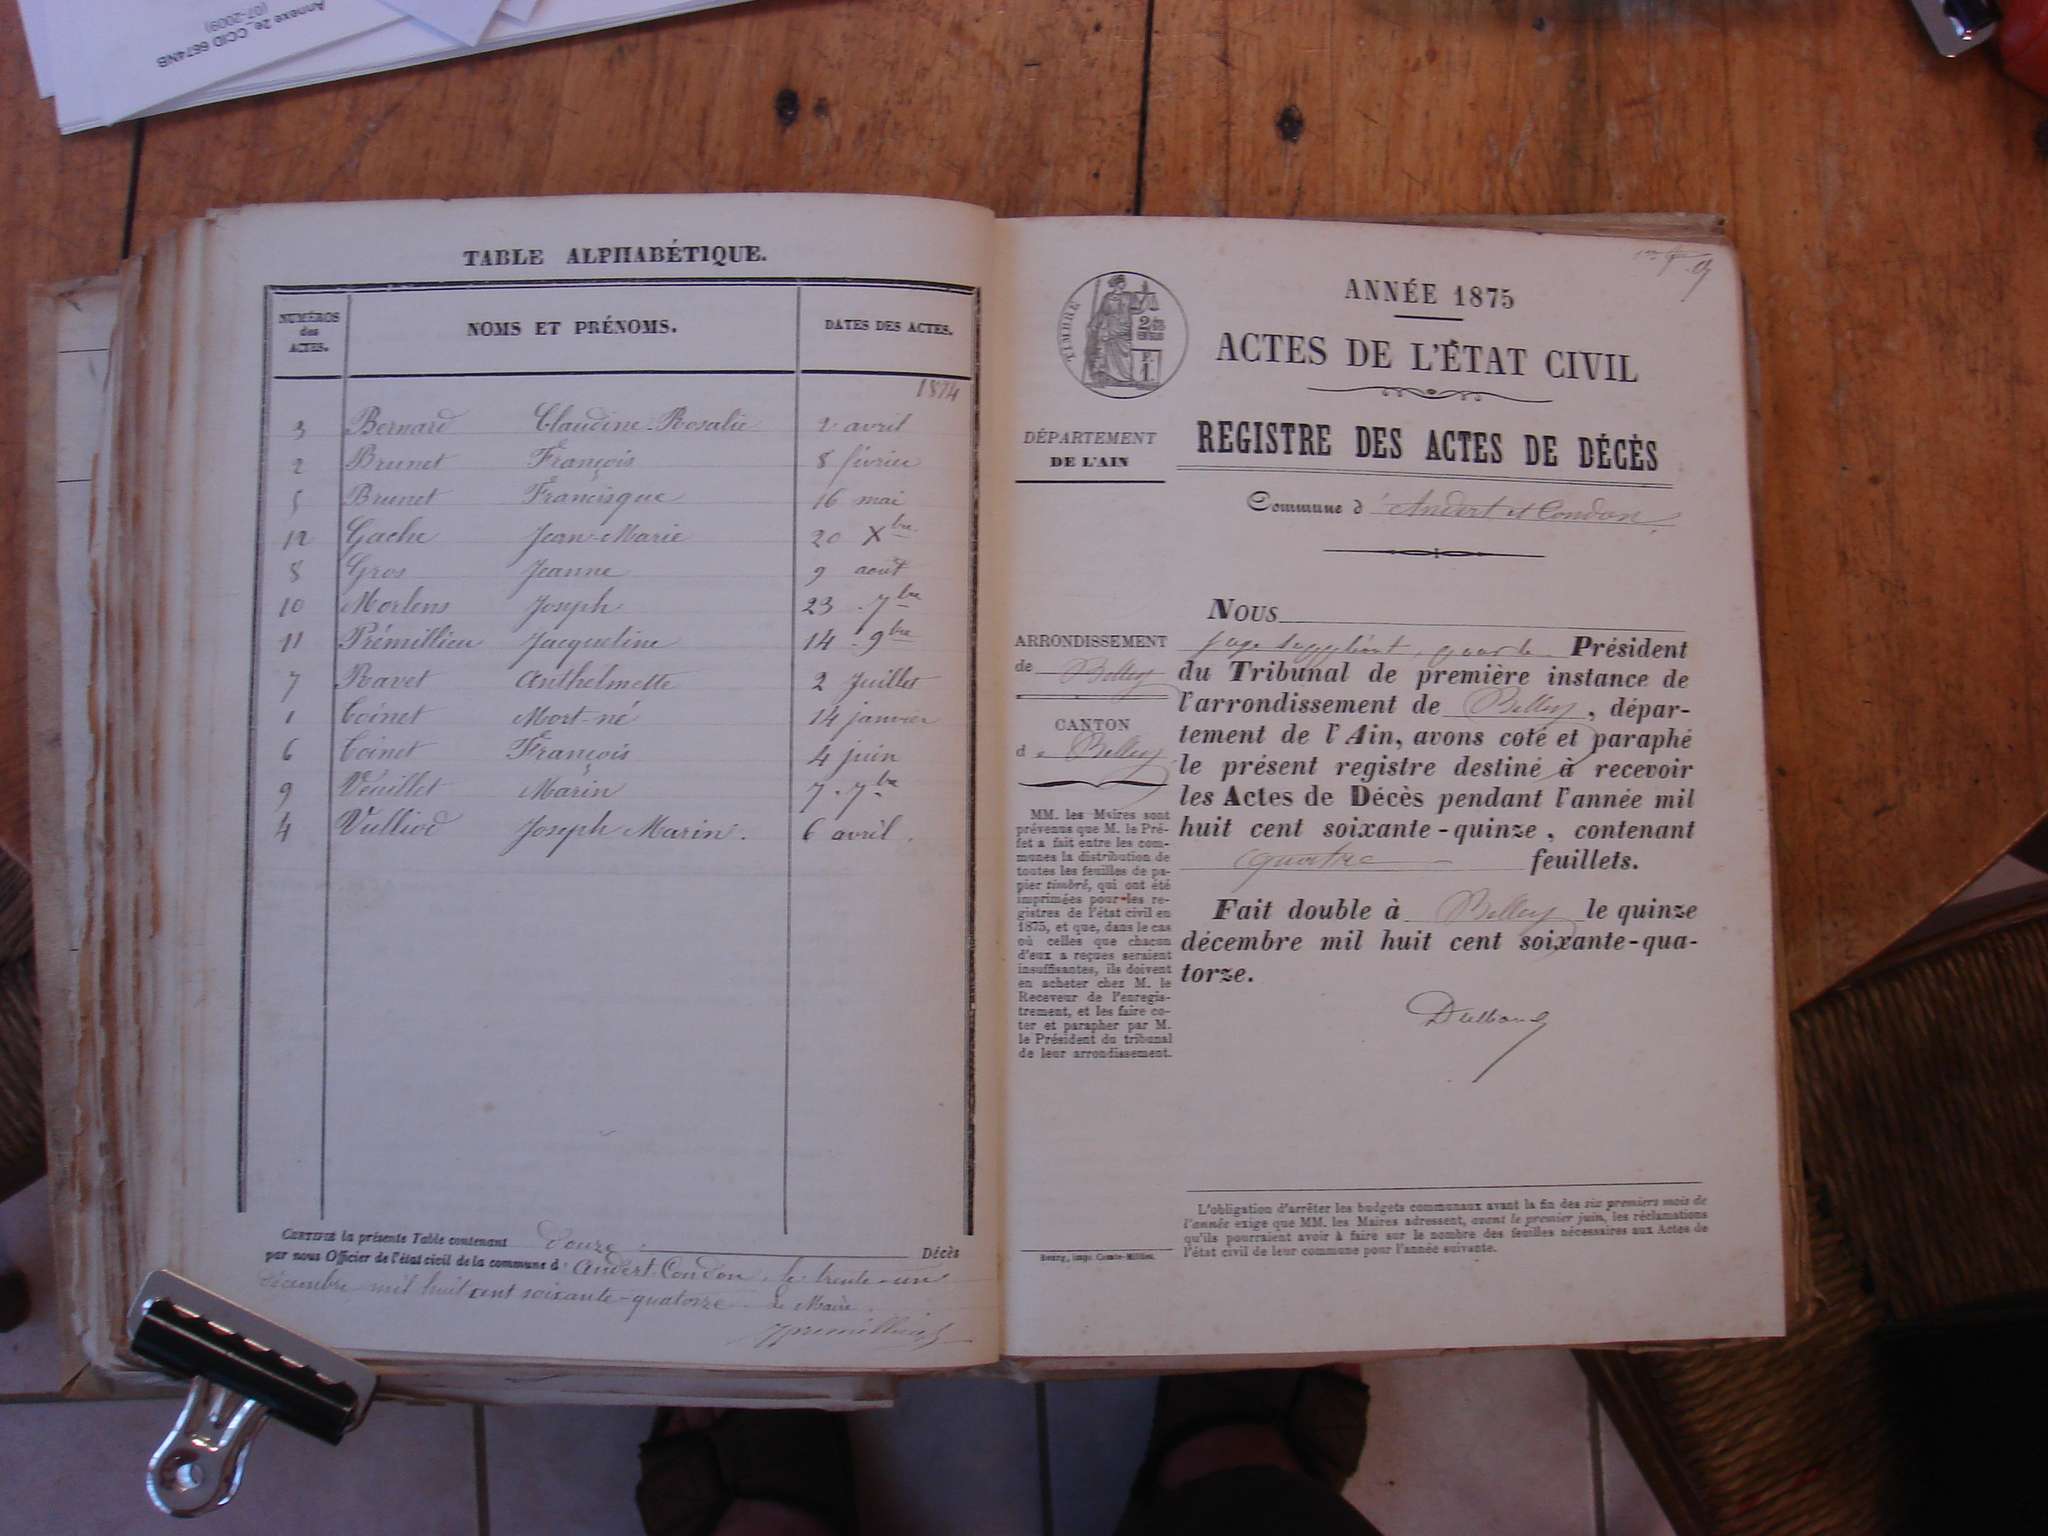 Annexe 2e_CCID 6674NB
(07-2009)
TABLE ALPHABÉTIQUE.
NUMÉROS
des
ACTES.
NOMS ET PRÉNOMS.
DATES DES ACTES.
1874
3 Bernard Claudine-Rosalie 2 avril
2 Brunet François 8 février
5 Brunet Francisque 16 mai
12 Gache Jean-Marie 20 Xbre
8 Gros Jeanne 9 août
10 Morlens Joseph 23 7bre
11 Prémillieu Jacqueline 14 9bre
7 Ravet Anthelmette 2 Juillet
1 Coinet Mort-né 14 janvier
6 Coinet François 4 juin
9 Veuillet Marin 7 7bre
4 Vulliod Joseph Marin. 6 avril.
CERTIFIÉ la présente Table contenant douze Décès
par nous Officier de l'état civil de la commune d' Andert-Condon, le trente-un
décembre mil huit cent soixante-quatorze. Le Maire.
TIMBRE
ANNÉE 1875
ACTES DE L'ÉTAT CIVIL
REGISTRE DES ACTES DE DÉCÈS
Commune d' Andert et Condon.
DÉPARTEMENT
DE L'AIN
ARRONDISSEMENT
de Belley
CANTON
de Belley
MM. les Maires sont
prévenus que M. le Pré-
fet a fait entre les com-
munes la distribution de
toutes les feuilles de pa-
pier timbré, qui ont été
imprimées pour les re-
gistres de l'état civil en
1875, et que, dans le cas
où celles que chacun
d'eux a reçues seraient
insuffisantes, ils doivent
en acheter chez M. le
Receveur de l'enregis-
trement, et les faire co-
ter et parapher par M.
le Président du tribunal
de leur arrondissement.
Bourg, imp. Comte-Milliet.
NOUS
juge suppléant, pour le Président
du Tribunal de première instance de
l'arrondissement de Belley, dépar-
tement de l'Ain, avons coté et paraphé
le présent registre destiné à recevoir
les Actes de Décès pendant l'année mil
huit cent soixante-quinze, contenant
quatre feuillets.
Fait double à Belley le quinze
décembre mil huit cent soixante-qua-
torze.
L'obligation d'arrêter les budgets communaux avant la fin des six premiers mois de
l'année exige que MM. les Maires adressent, avant le premier juin, les réclamations
qu'ils pourraient avoir à faire sur le nombre des feuilles nécessaires aux Actes de
l'état civil de leur commune pour l'année suivante.